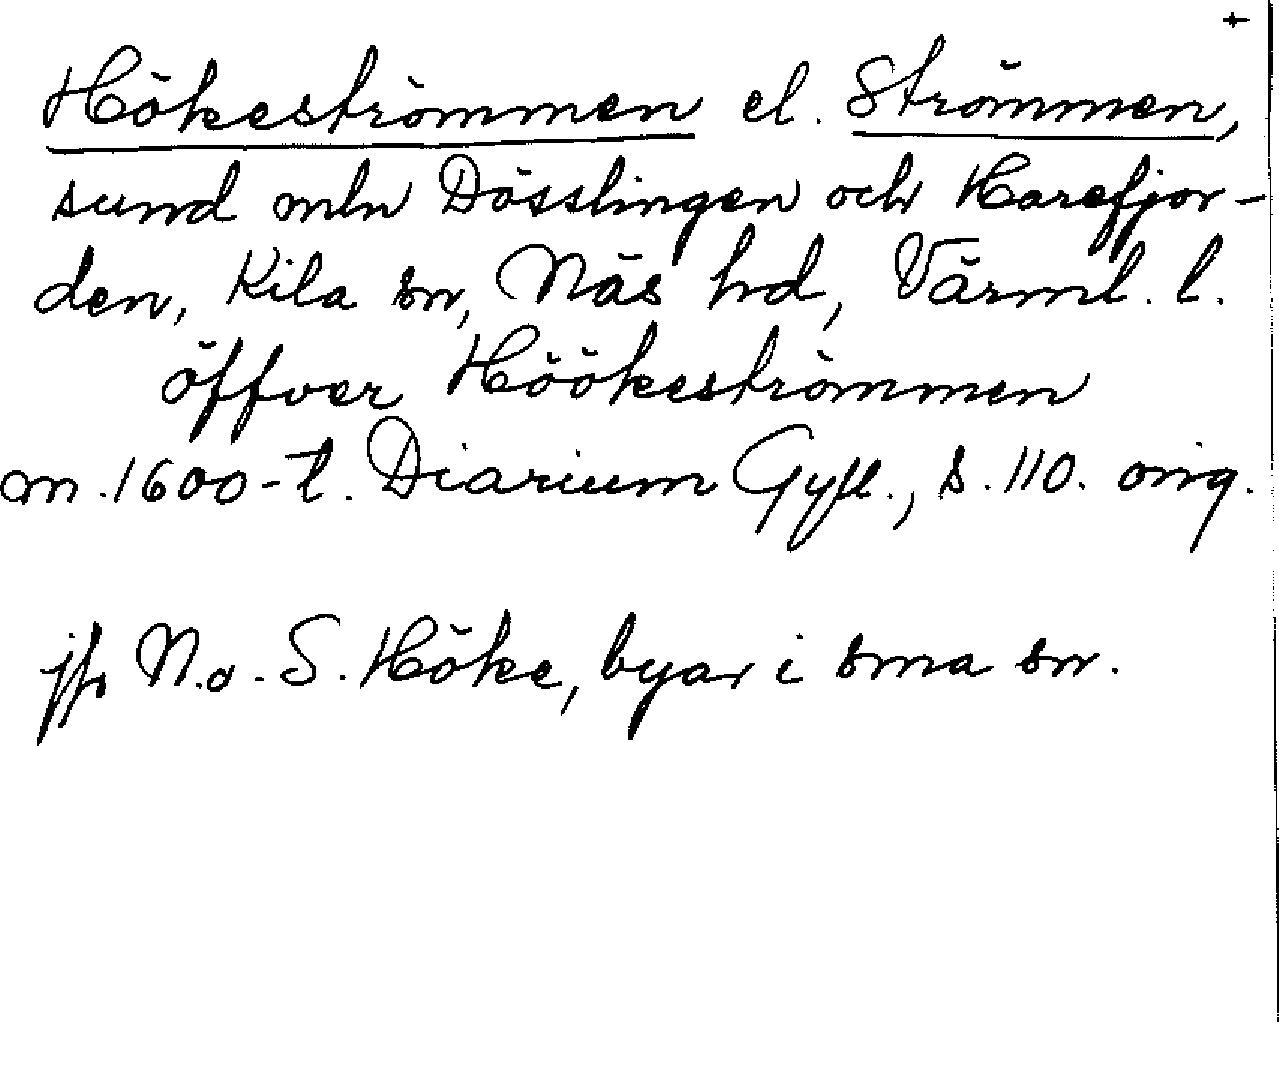 +
Hökeströmmen el. Strömmen,
sund mln Dösslingen och Harefjor-
den, Kila sn, Näs hd, Värml. l.
öffver Höökeströmmen
m. 1600-t. Diarium Gyll., s. 110. orig.
jfr N. o. S. Höke, byar i sma sn.